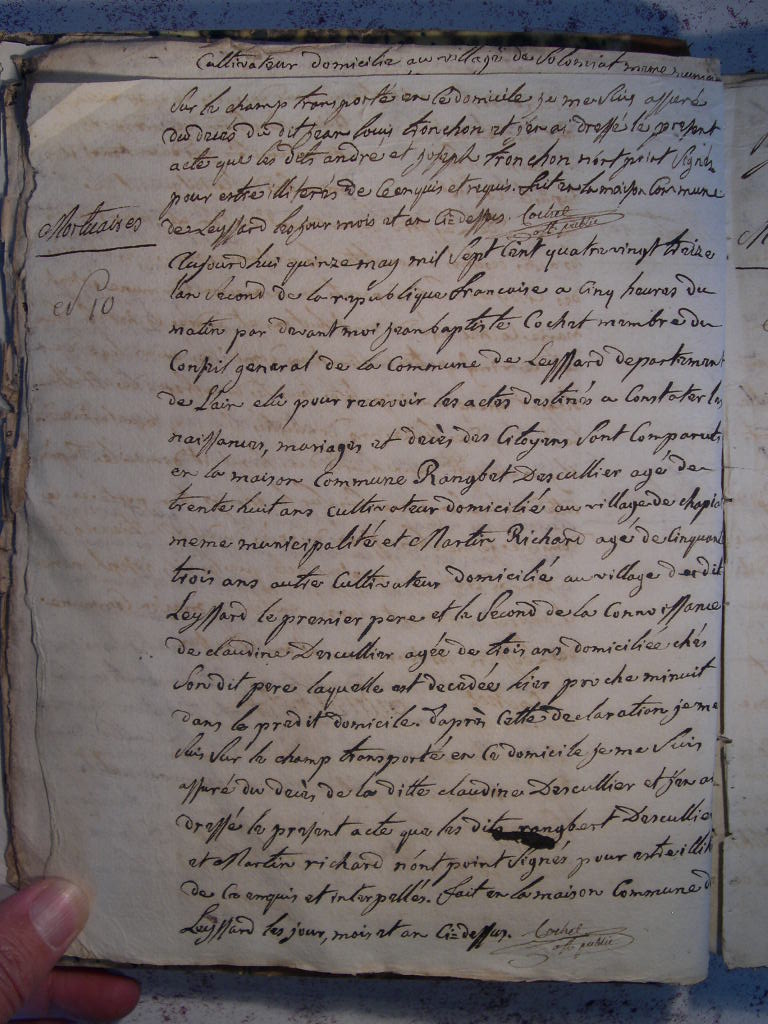 Cultivateur domicilié au village de Solomiat meme
Sur le champ transporté en ce domicile je me suis assuré
du décès du dit jean louis tronchon et j'en ai dressé le present
acte que les dits andré et joseph tronchon n'ont point signés
pour entre illiterés de ce enquis et requis. fait en la maison Commune
de Leyssard les jour mois et an Ci=dessus. Cochet
off. public
Mortuaires
Aujourdhui quinze may mil Sept Cent quatre vingt treize
N 10
lan Second de la republique francaise a Cinq heures du
matin par devant moi jean baptiste Cochet membre du
Conseil general de la Commune de Leyssard departement
de L'ain elû pour recevoir les actes destinés a Constater les
naissances, mariages et décès des Citoyens Sont Comparuts
en la maison Commune Rangbert Descullier agé de
trente huit ans cultivateur domicilié au village de chapia
meme municipalité et Martin Richard agé de Cinquant
trois ans autre Cultivateur domicilié au village dudit
Leyssard le premier pere et le Second de la Connoissance
de claudine Descullier agée de trois ans domiciliée chés
Son dit pere laquelle est decedée hier proche minuit
dans le predit domicile. d'après Cette declaration je me
Suis Sur le champ transporté en Ce domicile je me Suis
assuré du décès de la ditte claudine Descullier et j'en ai
dressé le present acte que les dits rangbert Descullie
et Martin richard n'ont point Signés pour estre illit
de Ce enquis et interpellés. fait en la maison Commune d
Leyssard les jour, mois et an Ci=dessus. Cochet
off. public